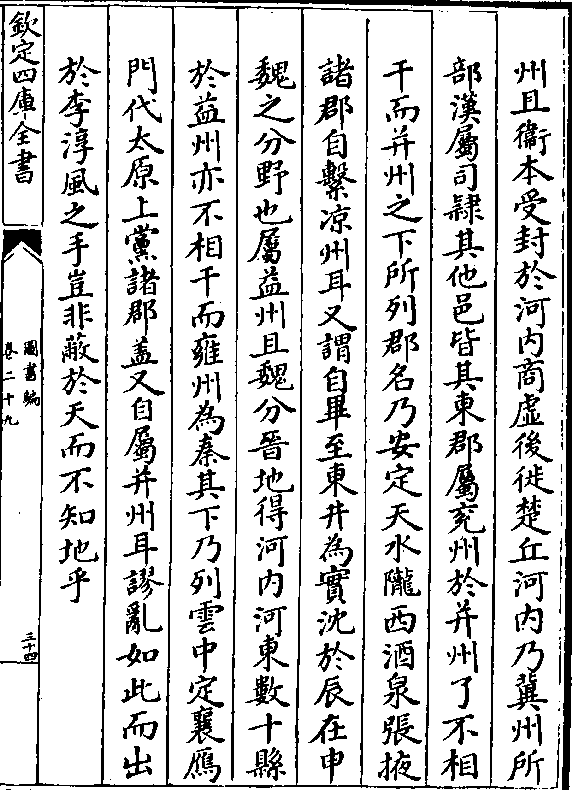 州且衞本受封於河内商虛後徙楚丘河内乃冀州所
部漢屬司隸其他邑皆其東郡屬兖州於并州了不相
干而并州之下所列郡名乃安定天水隴西酒泉張掖
諸郡自繫凉州耳又謂自畢至東井為實沈於辰在申
魏之分野也屬益州且魏分晉地得河内河東數十縣
於益州亦不相干而雍州為秦其下乃列雲中定襄鴈
門代太原上黨諸郡盖又自屬并州耳謬亂如此而出
於李淳風之手豈非蔽於天而不知地乎
欽定四庫全書
圖書編
卷二十九
三十四